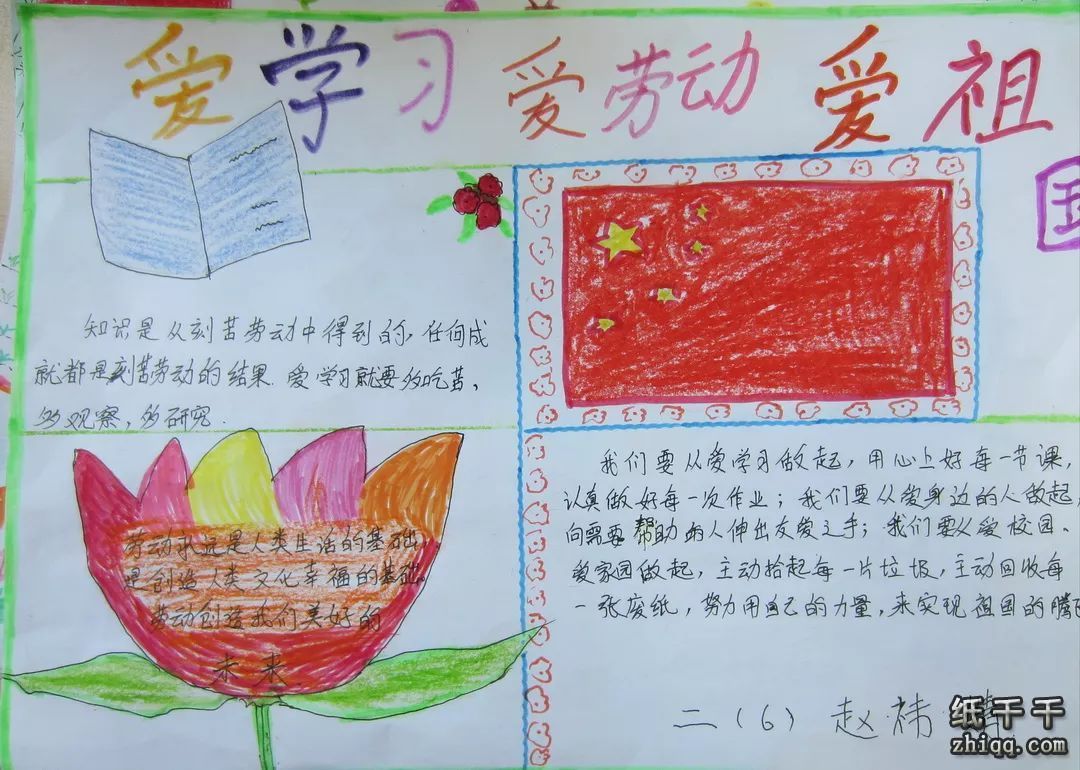 爱学习 爱劳动 爱祖
国
知识是从刻苦劳动中得到的,任何成
就都是刻苦劳动的结果.爱学习就要多吃苦,
多观察,多研究.
劳动永远是人类生活的基础
是创造人类文化幸福的基础。
劳动创造我们美好的
未来
我们要从爱学习做起,用心上好每一节课,
认真做好每一次作业;我们要从爱身边的人做起,
向需要帮助的人伸出友爱之手;我们要从爱校园、
爱家园做起,主动拾起每一片垃圾,主动回收每
一张废纸,努力用自己的力量,来实现祖国的腾
二(6) 赵祎
纸千千
zhiqq.com